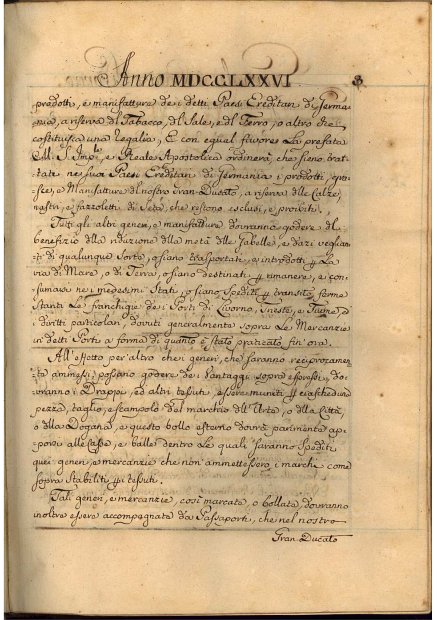 Anno MDCCLXXVI 3
prodotti, e manifatture de i detti Paesi Ereditari di Germa-
nia, a riserva di Tabacco, di Sale, e di Ferro, o altro che
costituisca una Regalia, E con egual favore La prefata
M. S. Imp.le e Reale Apostolica ordinerà, che sieno trat-
tate ne suoi Paesi Ereditari di Germania i prodotti,
e Manifatture del nostro Gran-Ducato, a riserva delle Calze,
nastri, e fazzoletti di Seta, che restono esclusi, e proibiti.
Tutti gli altri generi, e manifatture dovranno godere del
benefizio della riduzione alla metà delle Gabelle, e dazi veglian-
ti di qualunque Sorte, o siano trasportati, o introdotti p La
via di Mare, o di Terra, o siano destinati p rimanere, e con-
sumarsi ne i medesimi Stati, o siano Spediti p transito, ferme
stanti Le franchigie de i Porti di Livorno, Trieste, e Fiume, o
diritti particolari, dovuti generalmente sopra Le Mercanzie
in detti Porti a forma di quanto è stato praticato fin' ora.
All'effetto per altro che i generi, che saranno reciprocamente
ammessi, possano godere de i vantaggi sopra espressi, do-
vranno i Drappi, ed altri tessuti, essere muniti p ciascheduna
pezza, taglio, e scampolo del marchio dell'Arte, o della Città,
o della Dogana, e questo bollo esterno dovrà parimente ap-
porsi alle Casse, e balle dentro Le quali saranno Spediti
quei generi, e mercanzie che non ammettessero i marchi come
sopra Stabiliti pi tessuti.
Tali generi, e mercanzie, così marcate, o bollate, dovranno
inoltre essere accompagnate da Passaporti, che nel nostro
Gran Ducato